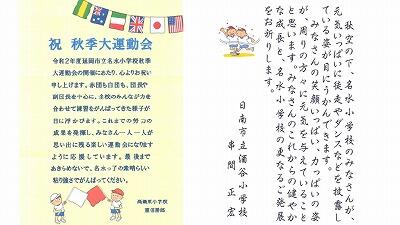 祝 秋季大運動会
令和2年度延岡市立名水小学校秋季
大運動会の開催にあたり、心よりお祝い
申し上げます。赤団も白団も、団長や
副団長を中心に、全校のみんなが力を
合わせて練習をがんばってきた様子が
目に浮かびます。これまでの努力の
成果を発揮し、みなさん一人一人が
思い出に残る楽しい運動会になります
ように応援しています。最後まで
あきらめないで、名水っ子の素晴らしい
粘り強さでがんばってください。
小学校
秋空の下、名水小学校のみなさんが、
元気いっぱいに徒走やダンスなどを披露し
ている姿が目にうかんできます。
みなさんの笑顔いっぱい、力いっぱいの姿
が、周りの方々に元気を与えていること
と思います。みなさんのこれからの健やか
な成長と、名水小学校の更なるご発展
をお祈りします。
日南市立酒谷小学校
串間 正宏